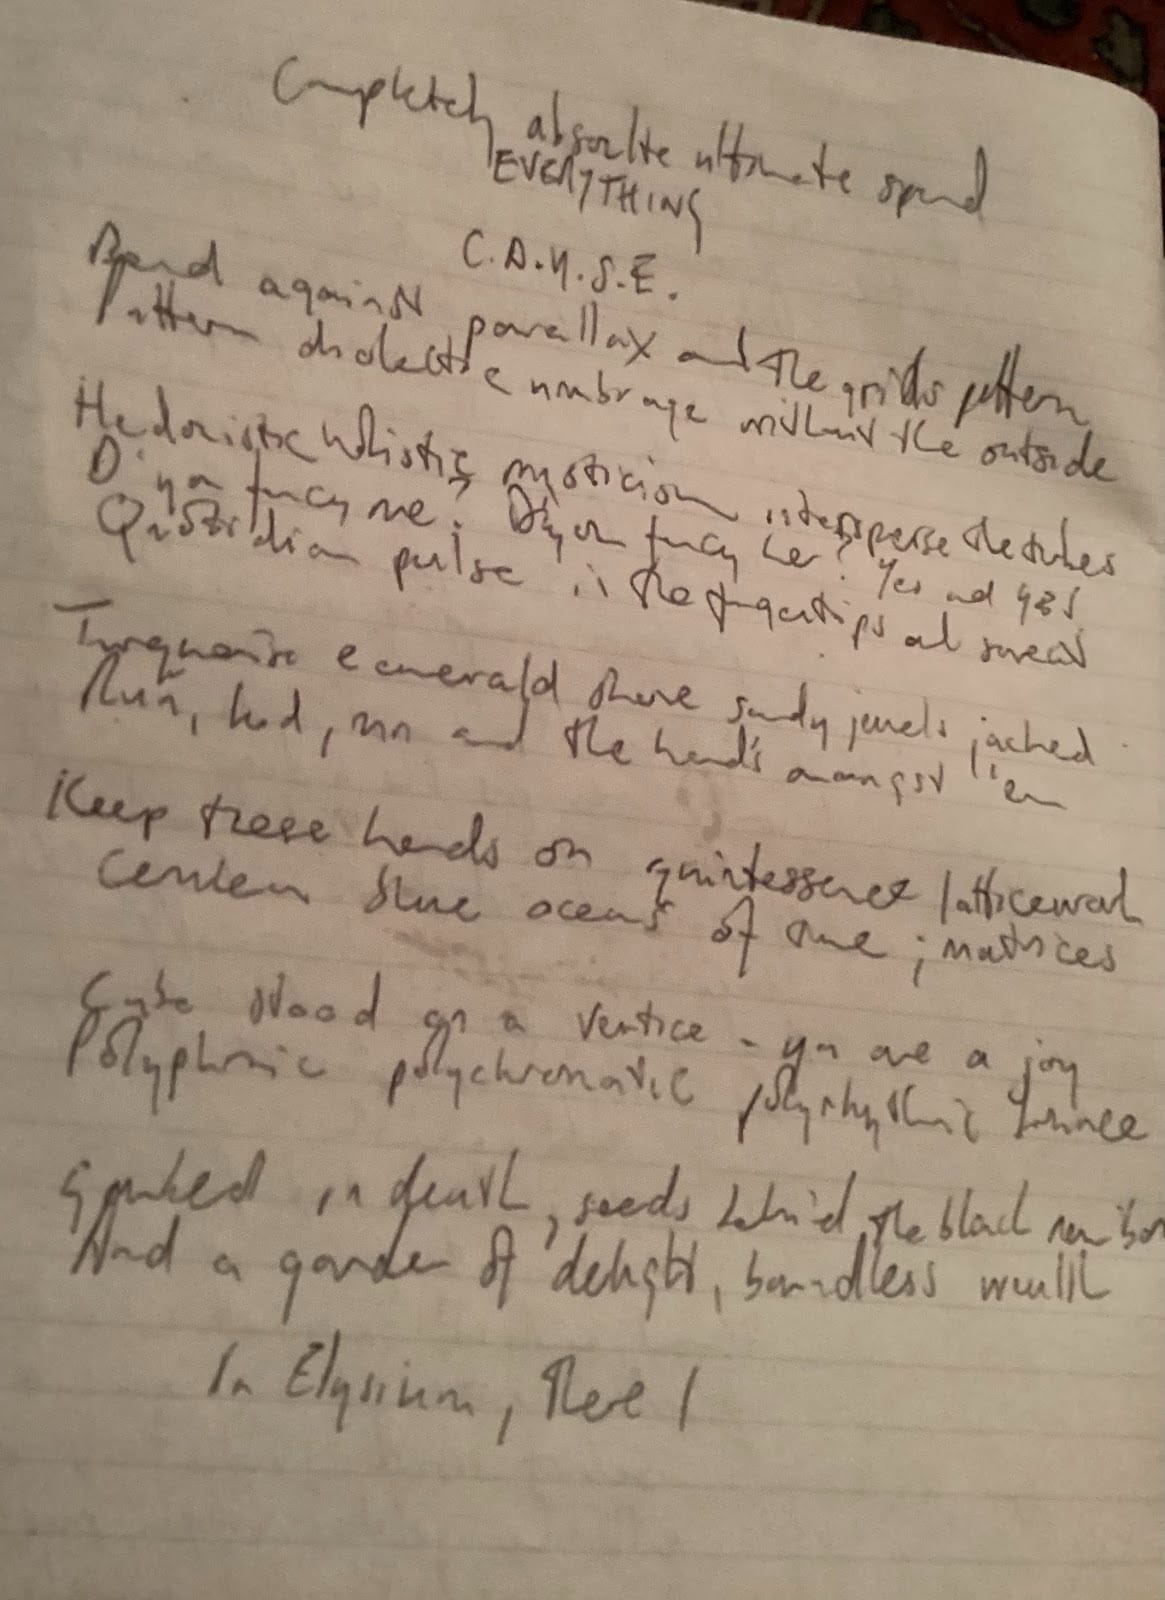 Completely absolute ultimate spend
EVERYTHING
C.A.U.S.E.
Spend against parallax and the grids pattern
Pattern dialectic umbrage without the outside
Hedonistic holistic mysticism intersperse the tubes
D'ya fancy me? D'you fancy her? Yes and yes
Quotidian pulse in the fingertips and sweat
Turquoise emerald shore sandy jewels jached
Run, and the hands amongst 'em
Keep these hands on quintessence latticework
Cerulean blue oceans of time; matrices
Cube stood on a vertice - you are a joy
Polyphonic polychromatic polyrhythmic bounce
in death, seeds behind the black
And a garden of delight, boundless wealth
In Elysium, there I